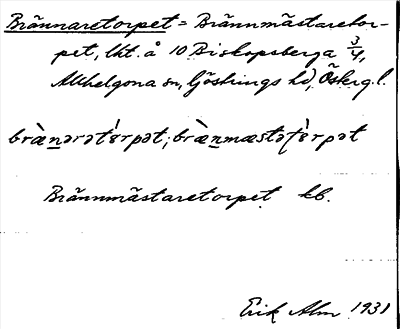 Brännaretorpet = Brännmästaretor-
pet, lht. å 10 Biskopsberga 3/4,
Allhelgona sn, Göstrings hd, Östergl.
brä̀nərətɵrpət; brä̀nmæstətɵrpət
Brännmästaretorpet kb.
Erik Alm 1931